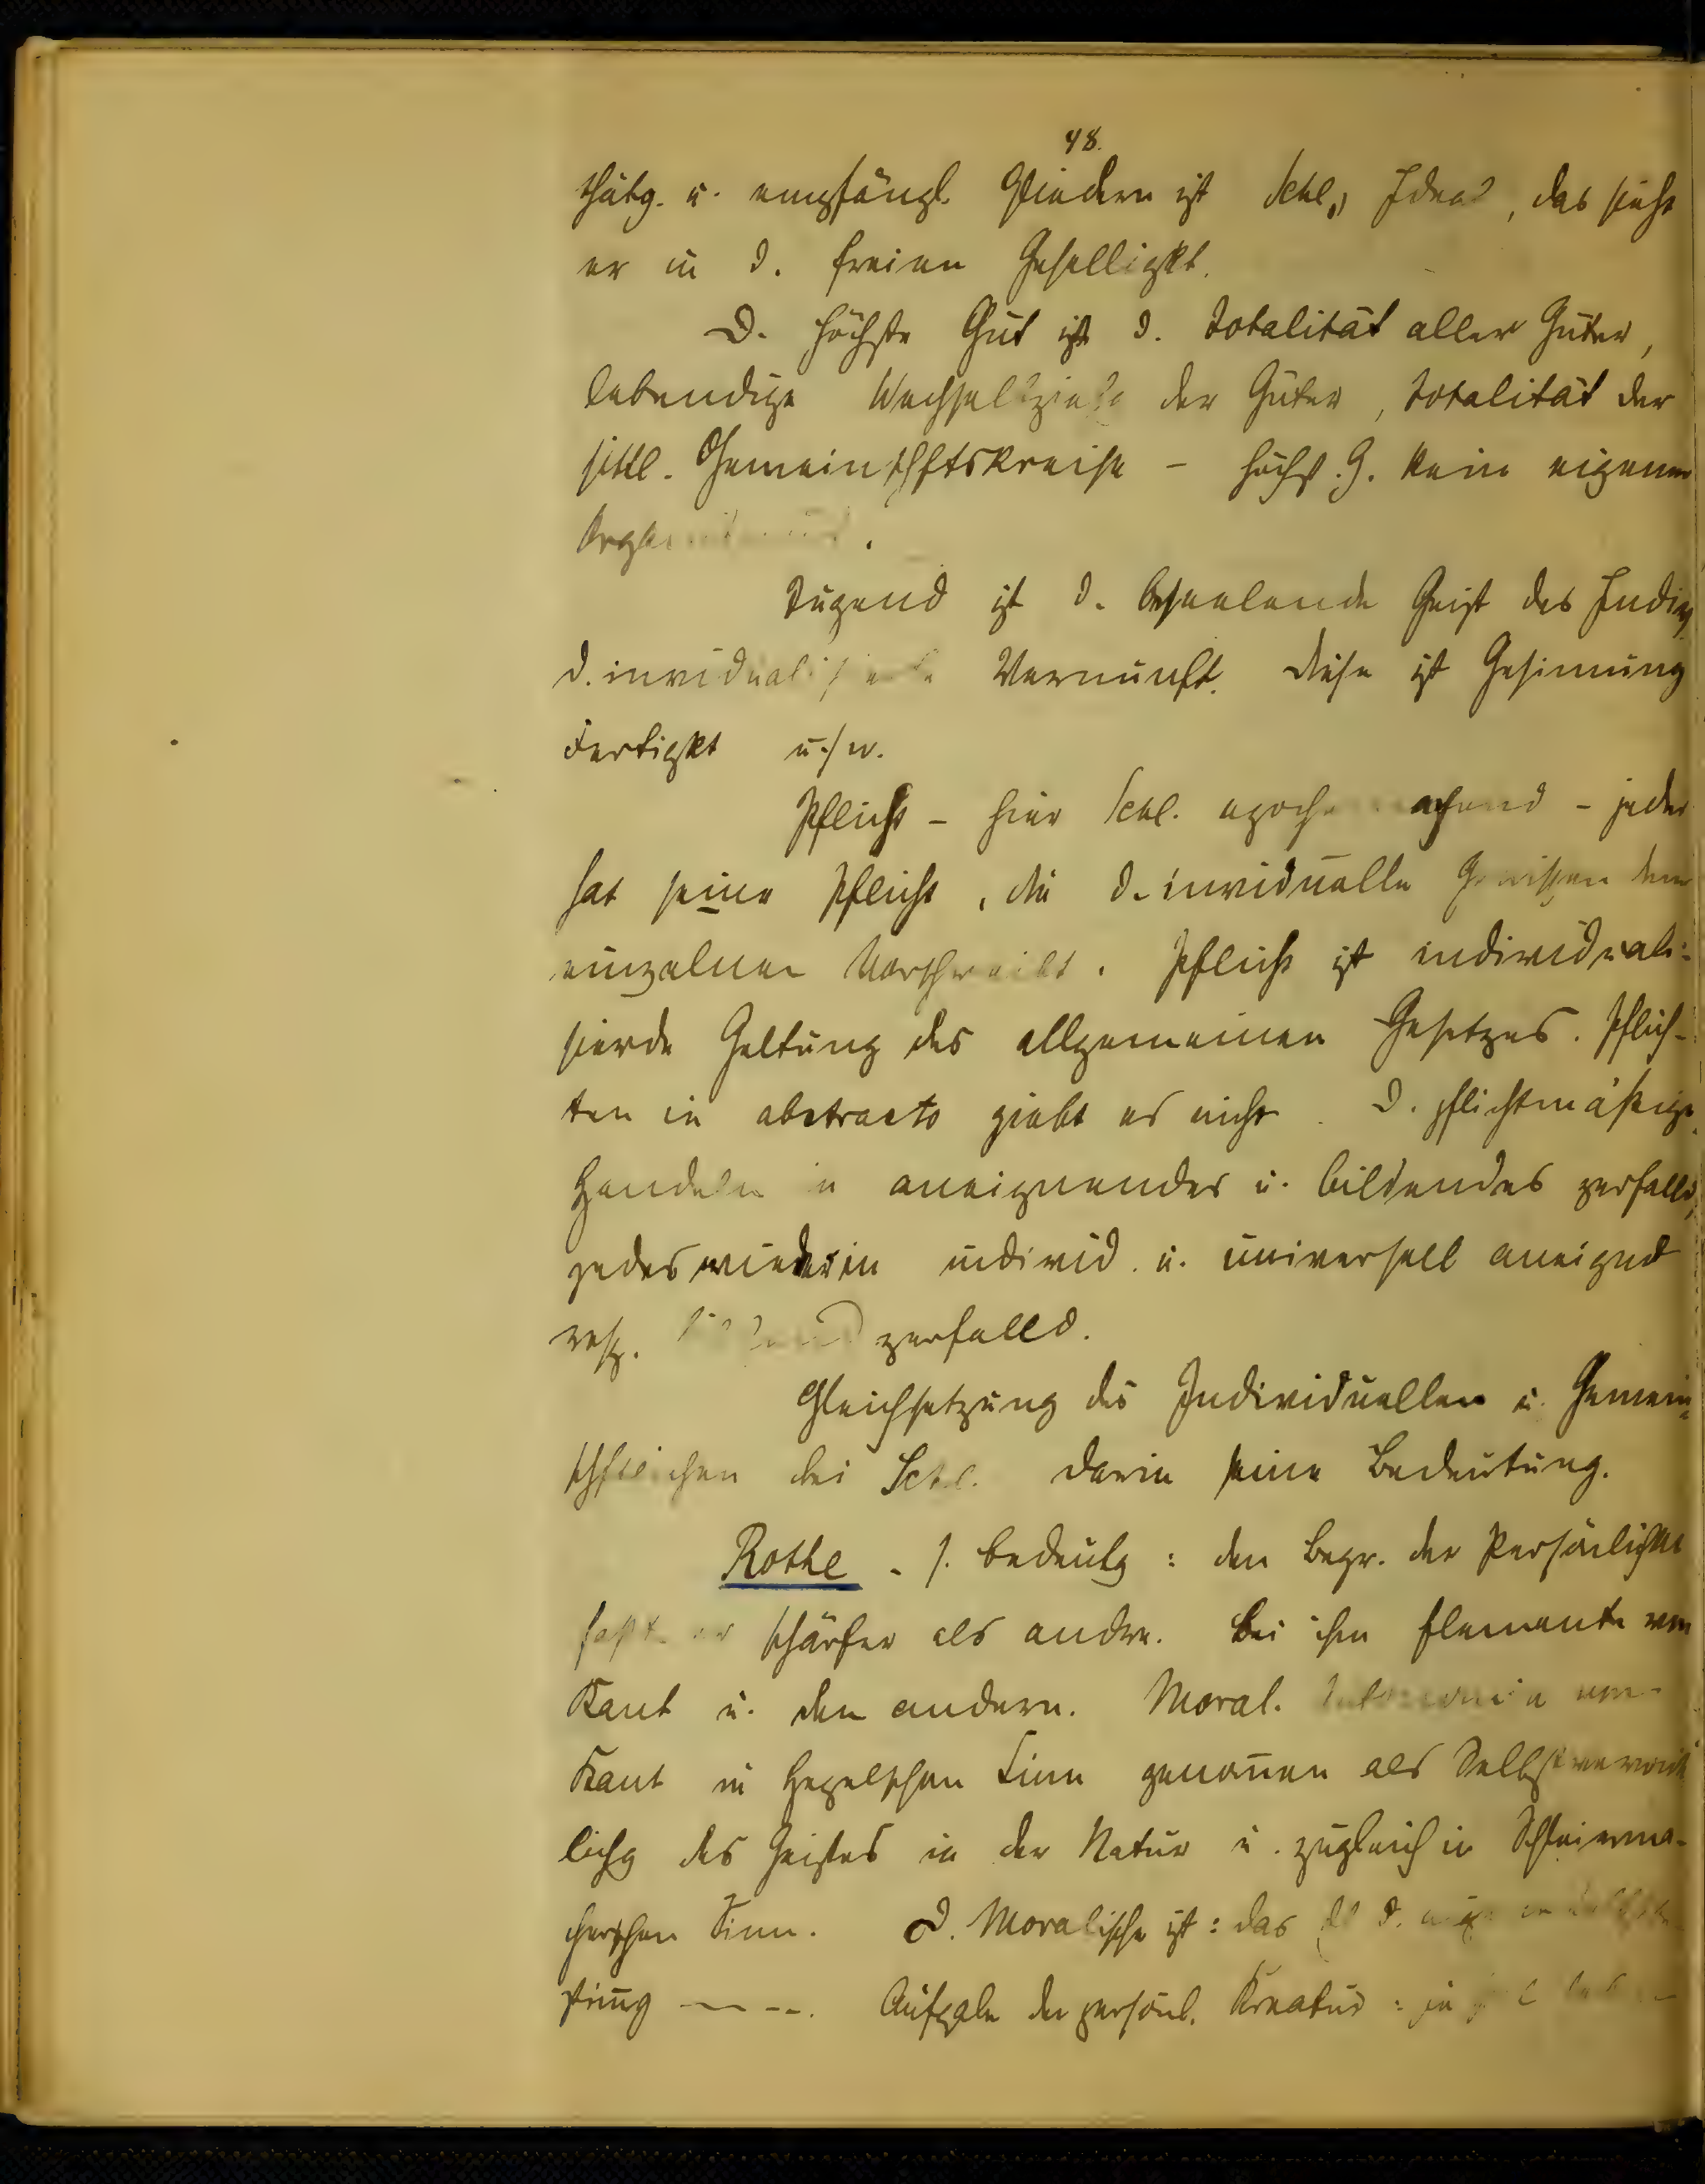 48.
thätg. u. empfängl. Gliedern ist Schl.s Ideal, das sieht
er in d. freien Geselligkt.
D. höchste Gut ist d. Totalität aller Güter,
lebendige der Güter, Totalität der
sittl. Gemeinschftskreise – höchst. G. kein eigener
Tugend ist d. beseelende Geist des Indiv.
d. Vernunft. Diese ist Gesinnung
Fertigkt u.s.w.
Pflicht – hier Schl. epochemachend – jeder
hat seine Pflicht, die d. inviduelle Gewissen dem
einzelnen vorschreibt. Pflicht ist individuali-
sierde Geltung des allgemeinen Gesetzes. Pflich-
ten in abstracto giebt es nicht. D. pflichtmäßige
Handeln in aneignendes u. bildendes zerfalld,
jedes wieder in individ. u. universell aneignd
resp. zerfalld.
Gleichsetzung des Individuellen u. Gemein-
schftlichen bei Schl. darin seine Bedeutung.
Rothe - s. Bedeutg: den Begr. der Persönlichkt
faßt er schärfer als andre. Bei ihm Elemente von
Kant u. den andern. Moral. von
Kant in Hegelschen Sinn genomen als Selbstverwirk
lichg des Geistes in der Natur u. zugleich in Schleierma-
cherschen Sinn. D. Moralische ist: das
Aufgabe der persönl. Kreatur: